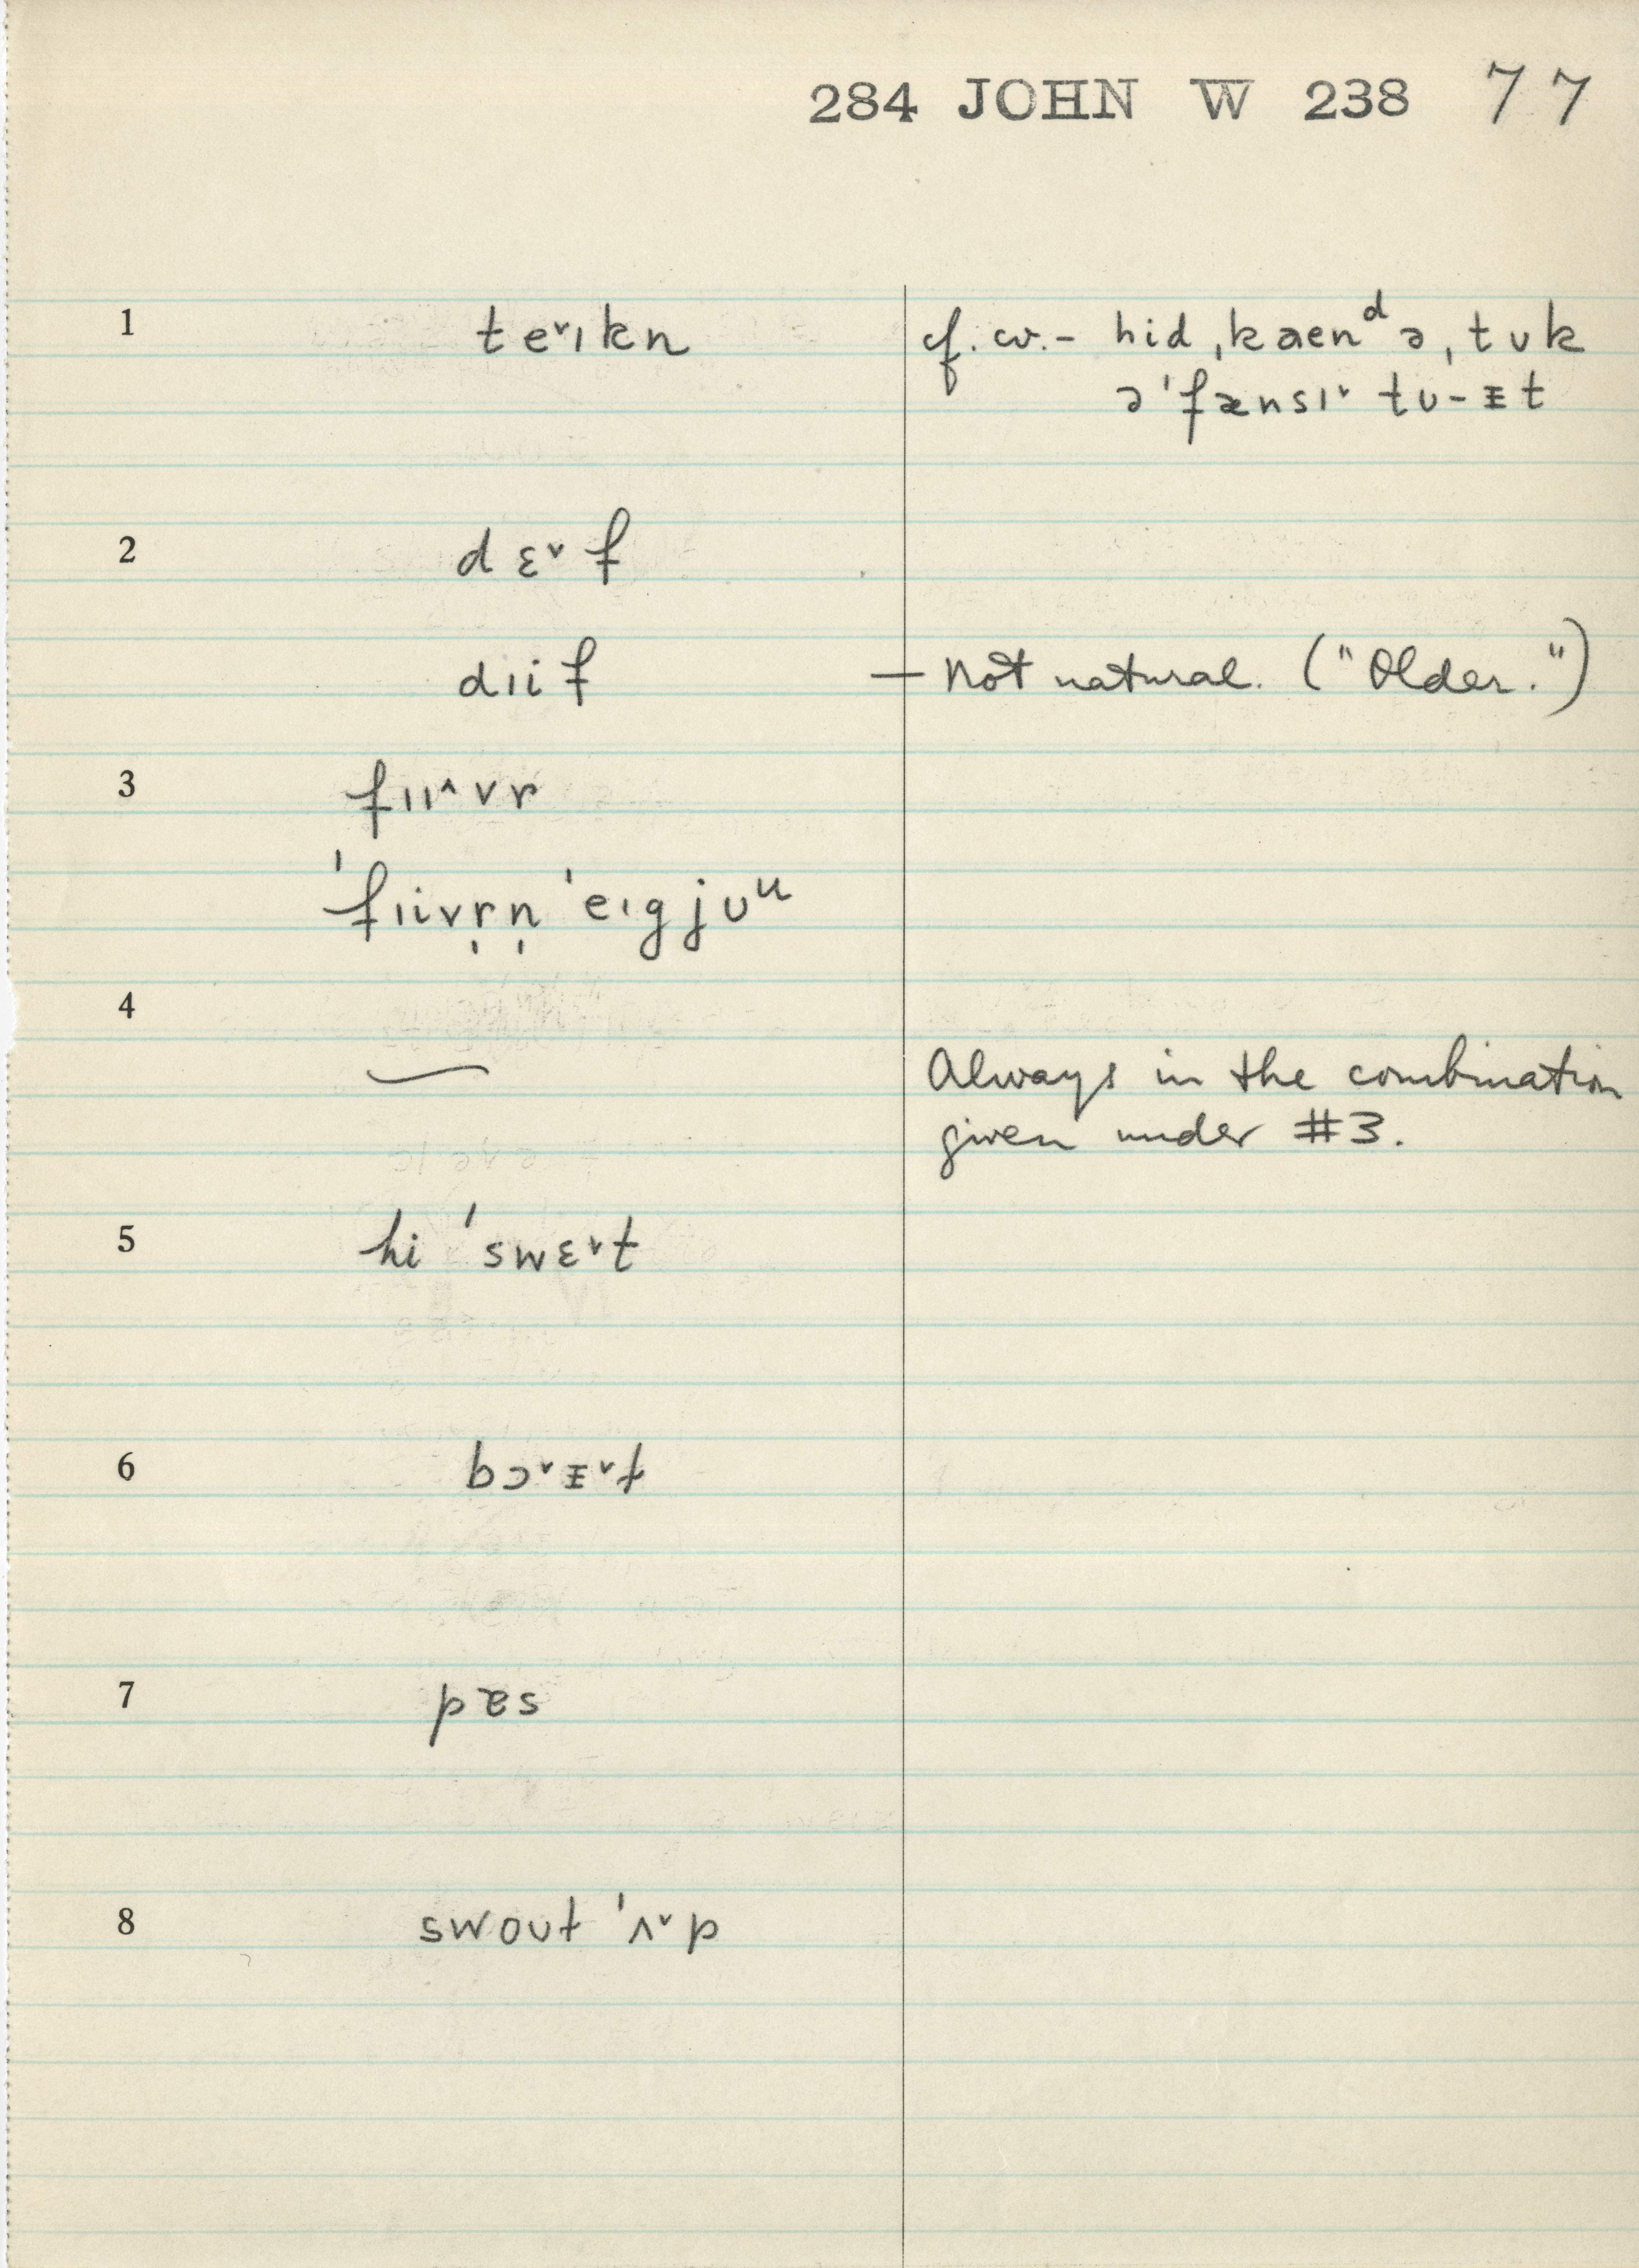 284 JOHN W 238 77
1 te˅ɪkn cf. w. – hid ˌkaenᵈ ə ˌtʊk
ə ˈfænsɪ˅ tʊ-ᵻt
2 dɛ˅f
dɪif — Not natural. ("Older.")
3 fɪɪ˄vr
ˈfɪivr̩n̩ ˈeɪgjʊᵘ
4
— Always in the combination
given under #3.
5 hi ˈswɛ˅t
6 bɔ˅ᵻ˅t
7 pæs
8 swoʊt ˈʌ˅p